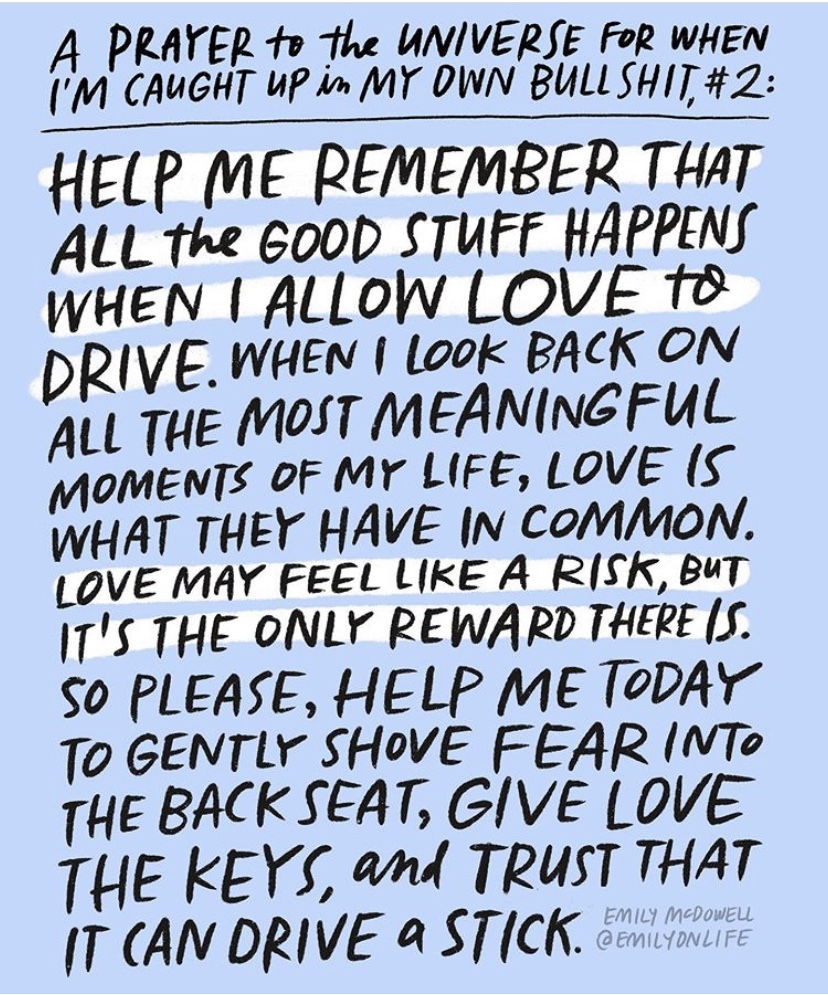 A PRAYER to the UNIVERSE FOR WHEN
I'M CAUGHT UP in MY OWN BULLSHIT, #2:
HELP ME REMEMBER THAT
ALL the GOOD STUFF HAPPENS
WHEN I ALLOW LOVE to
DRIVE. WHEN I LOOK BACK ON
ALL THE MOST MEANINGFUL
MOMENTS OF MY LIFE, LOVE IS
WHAT THEY HAVE IN COMMON.
LOVE MAY FEEL LIKE A RISK, BUT
IT'S THE ONLY REWARD THERE IS.
SO PLEASE, HELP ME TODAY
TO GENTLY SHOVE FEAR INTO
THE BACK SEAT, GIVE LOVE
THE KEYS, and TRUST THAT
IT CAN DRIVE a STICK.
EMILY McDOWELL
@EMILYONLIFE